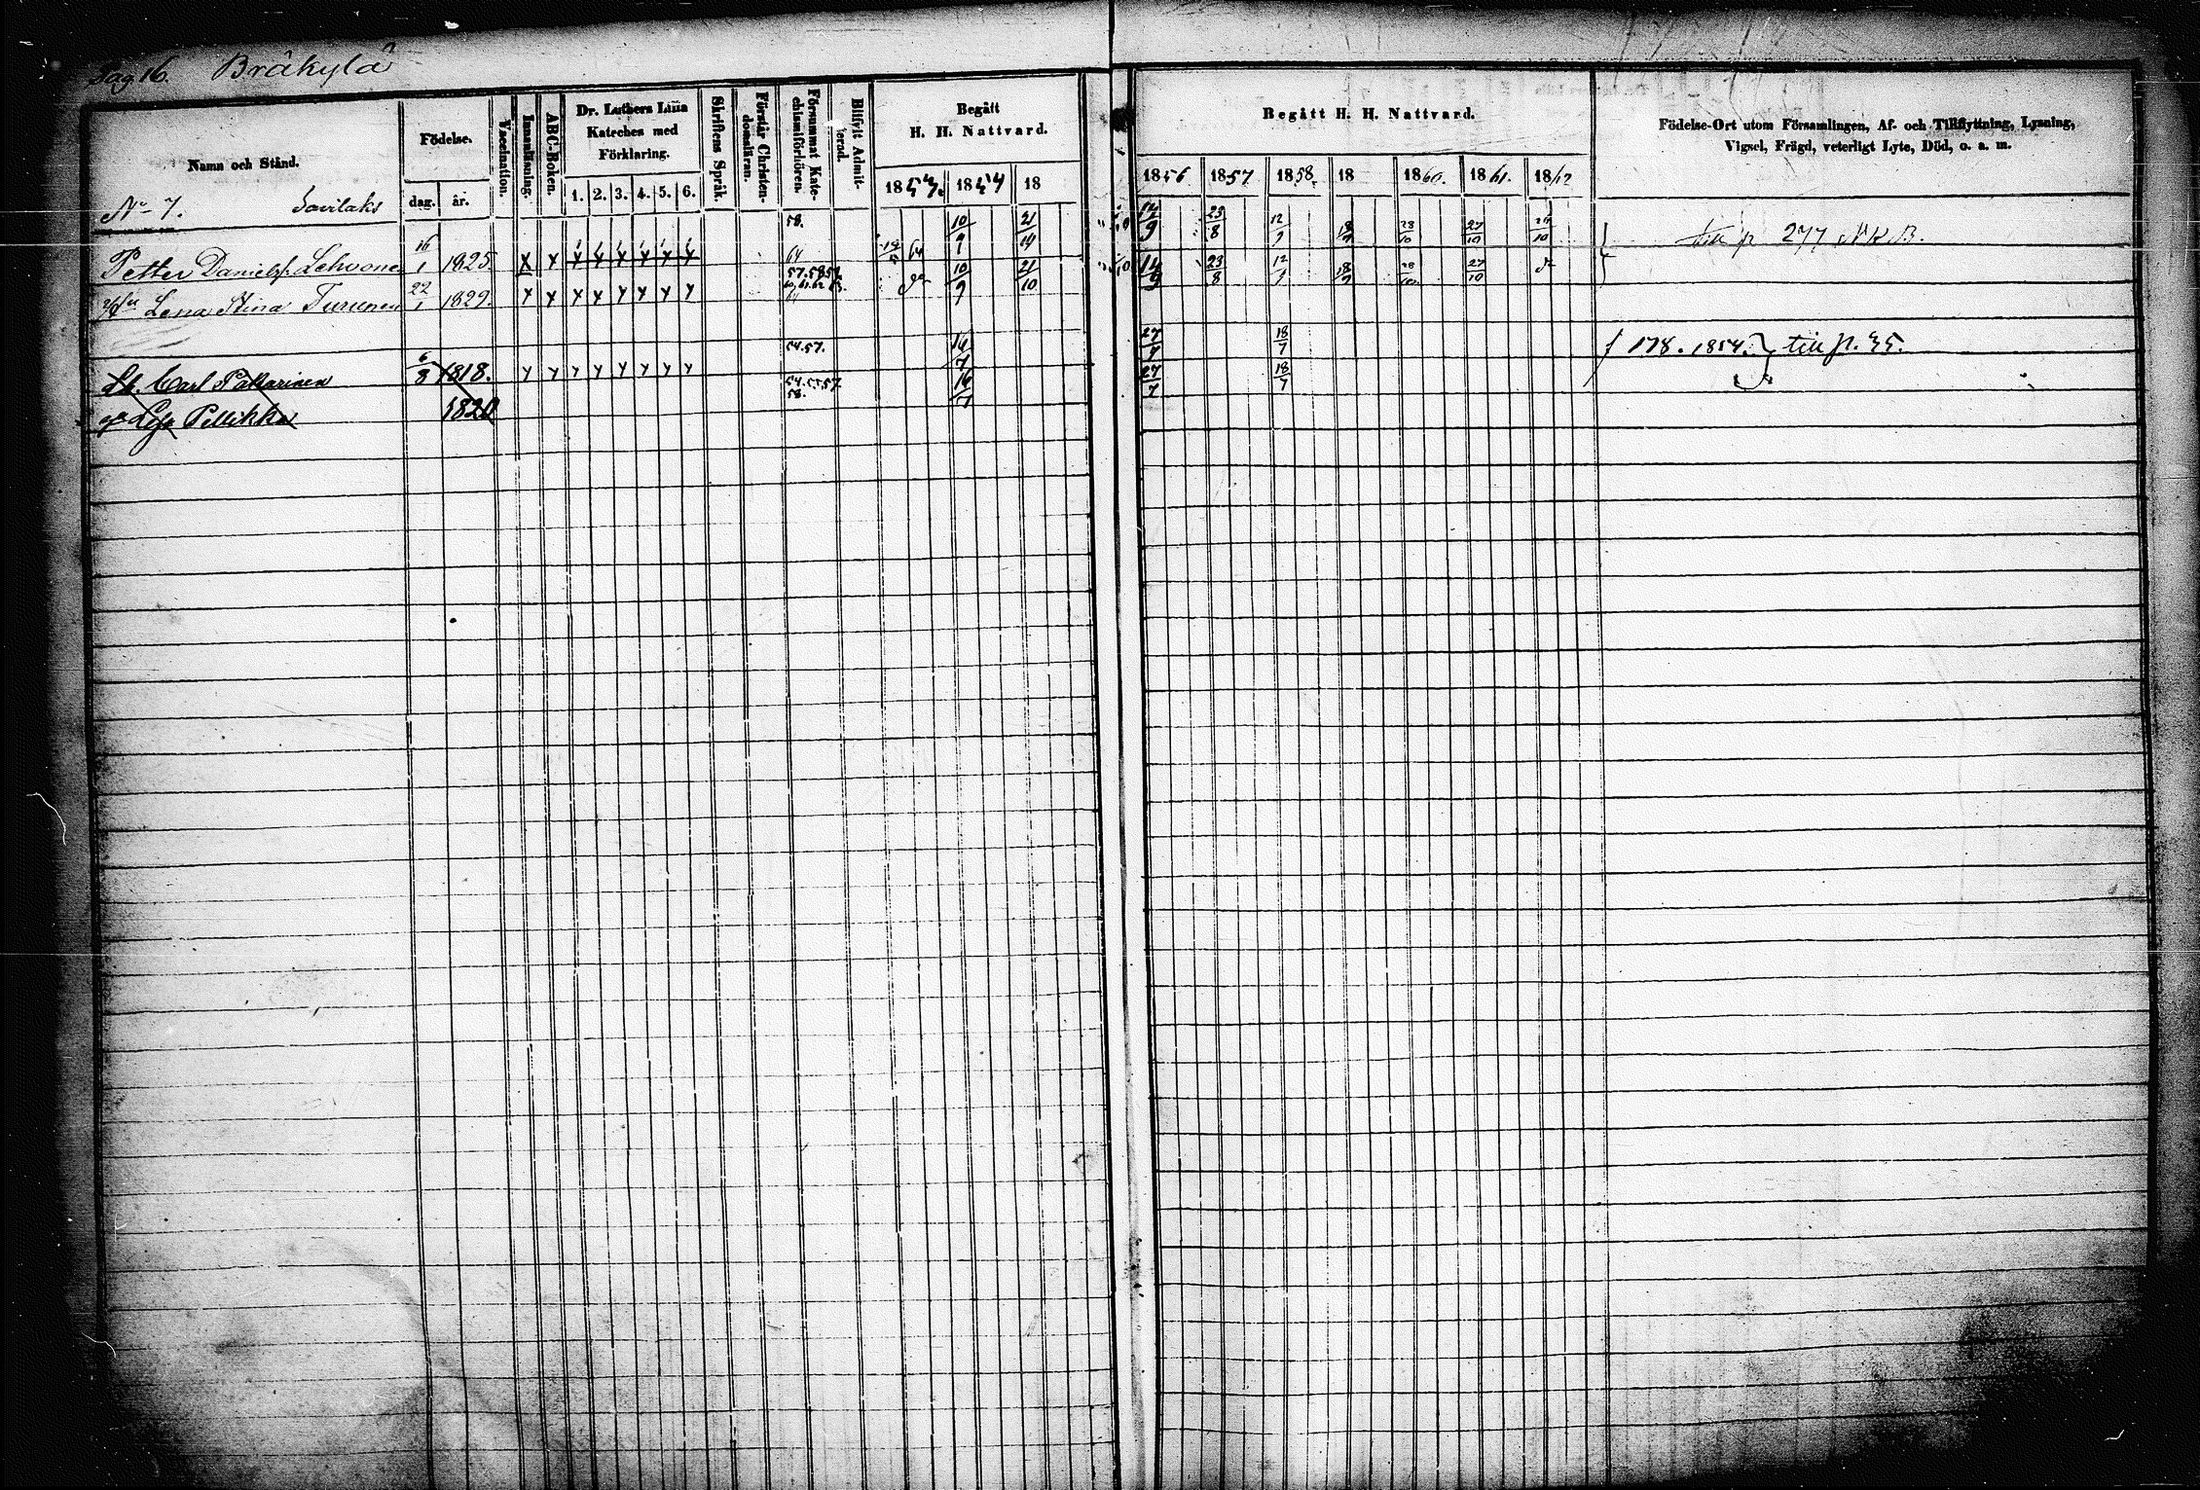 Pag 16. Bråkylä
Namn och Stånd.
Födelse.
dag. år.
Vaccination.
Innanläsning.
ABC-Boken.
Dr. Luthers Lilla
Kateches med
Förklaring.
1. 2. 3. 4. 5. 6.
Skriftens Språk.
Förstår Christen-
domsläran.
Försummat Kate-
chismiförhören.
Blifvit Admit-
terad.
Begått
H. H. Nattvard.
1854 18
Begått H. H. Nattvard.
1856 1857 1858. 18 1860. 1861. 1862
Födelse-Ort utom Församlingen, Af- och Tillflyttning, Lysning,
Vigsel, Frägd, veterligt Lyte, Död, o. a. m.
No 7. Savilaks
58. 10/9 14/9 23/8 12/9 18/9 28/10 27/10
Petter Danielsf. Lehvonen 16/1 1825. x x 64
till p 277 N K B.
57.58 10/9 21/10 14/9 23/8 12/9 18/9 28/10 27/10
Lena Stina Turunen 22/1 1829.
54.57. 16/7 27/7 18/7
Carl Pakarinen 6/8 1818.
178. 1854. till p. 35.
58. 16/7 27/7 18/7
Pellikka 1820